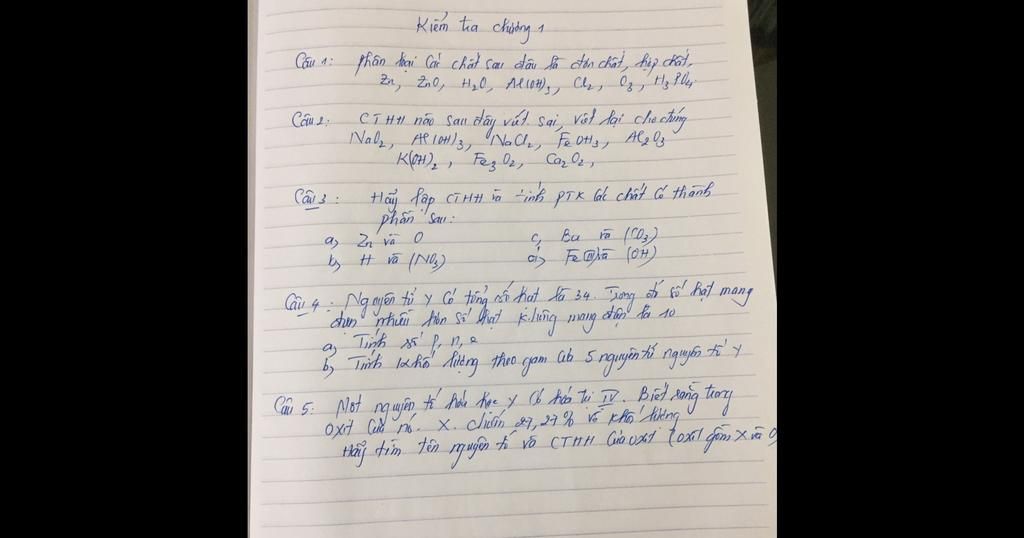 Kiểm tra chương 1
Câu 1: Phân loại các chất sau đâu là đơn chất, hợp chất.
Zn, ZnO, H2O, Al(OH)3, Cl2, O3, H3PO4
Câu 2: CTHH nào sau đây viết sai, viết lại cho đúng
NaO2, Al(OH)3, NaCl2, FeOH3, Al2O3
K(OH)2, Fe3O2, Ca2O2,
Câu 3: Hãy lập CTHH và tính PTK các chất có thành
phần sau:
a) Zn và O c, Ba và (CO3)
b) H và (NO3) d) Fe(III) và (OH)
Câu 4: Nguyên tử Y có tổng số hạt là 34. Trong đó số hạt mang
điện nhiều hơn số hạt không mang điện là 10
a) Tính số p, n, e
b) Tính khối lượng theo gam của 5 nguyên tử nguyên tố Y
Câu 5: Một nguyên tố hóa học X có hóa trị IV. Biết rằng trong
oxit của nó. X chiếm 27,27% về khối lượng
Hãy tìm tên nguyên tố và CTHH của oxit (oxit gồm X và O)